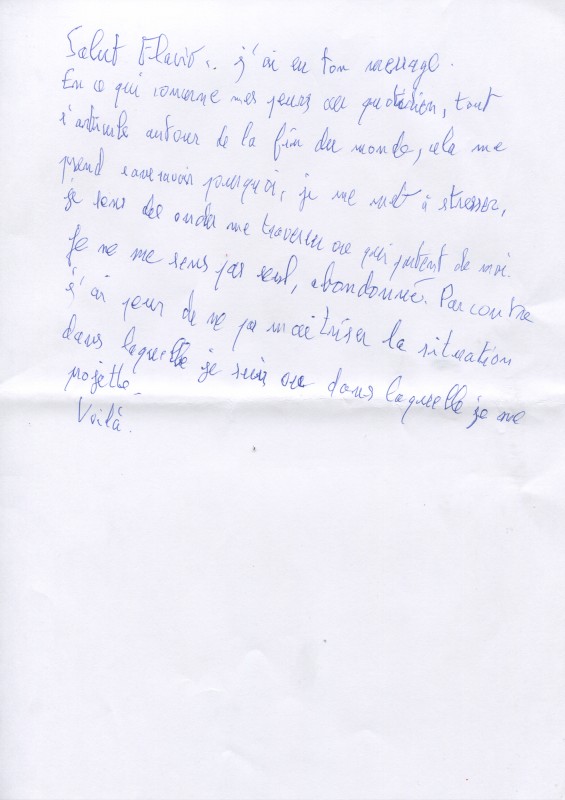 Salut Flavio.. j'ai eu ton message.
En ce qui concerne mes peurs au quotidien, tout
s'articule autour de la fin du monde, cela me
prend sans savoir pourquoi, je me met à stresser,
je sens des ondes me traverser ou qui partent de moi.
Je ne me sens pas seul, abandonné. Par contre
j'ai peur de ne pas maîtriser la situation
dans laquelle je suis ou dans laquelle je me
projette.
Voilà.